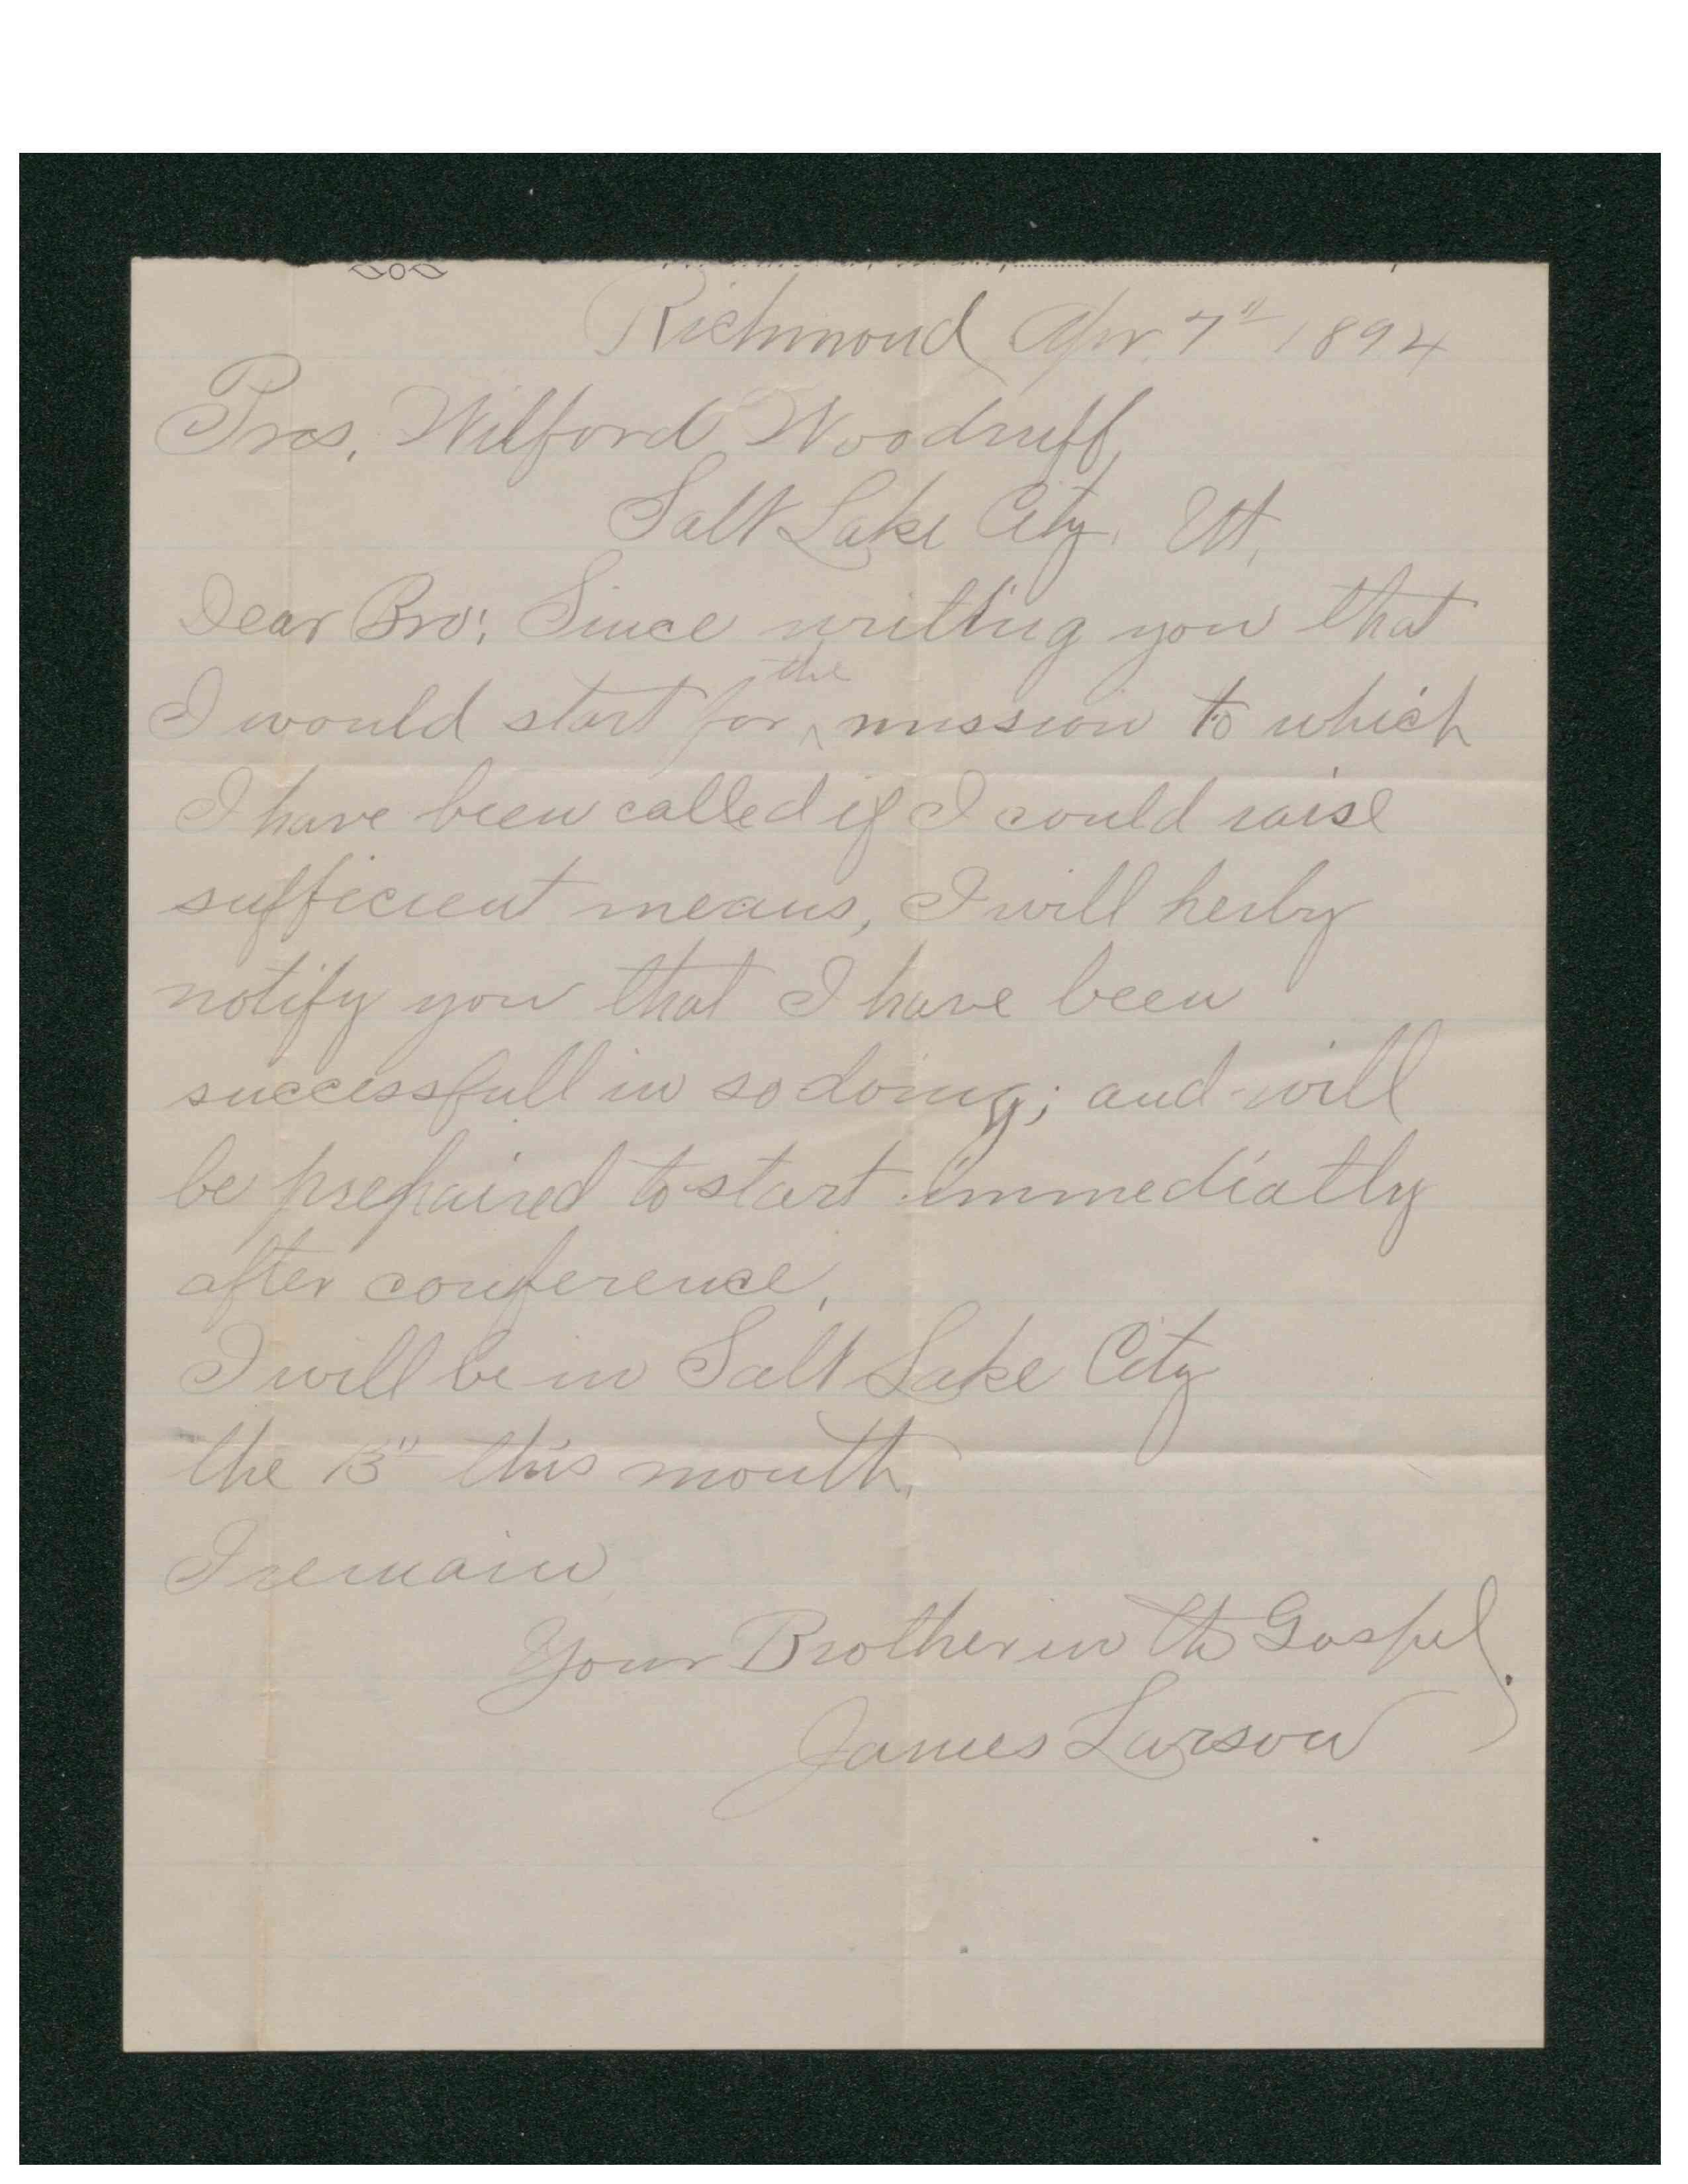 Richmond Apr. 7" 1894
Pres. Wilford Woodruff,
Salt Lake City. Ut.
Dear Bro: Since writting you that
I would start for ^the mission to which
I have been called if I could raise
sufficient means, I will herby
notify you that I have been
successfull in so doing; and will
be prepaired to start immediatly
after conference.
I will be in Salt Lake City
the 13" this month.
I remain
Your Brother in the Gospel.
James Larson